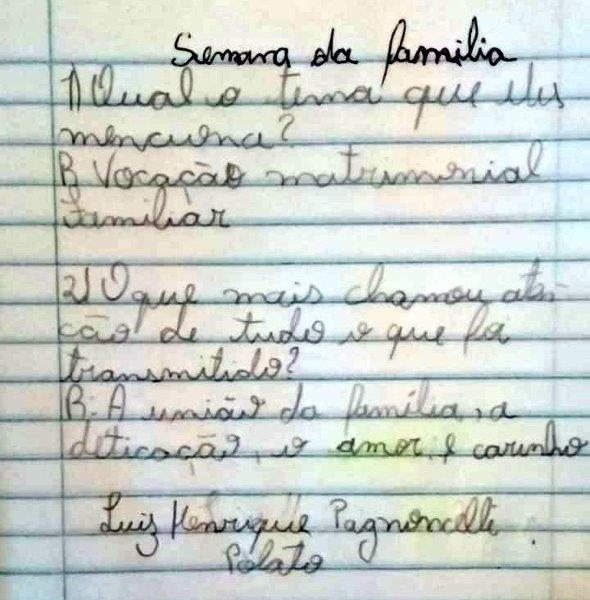 Semana da família
1) Qual o tema que eles
menciona?
R Vocação matrimonial
familiar
2) O que mais chamou aten-
ção de tudo o que foi
transmitido?
R: A união da família, a
deticação, o amor, e carinho
Luiz Henrique Pagnoncelli
Polato